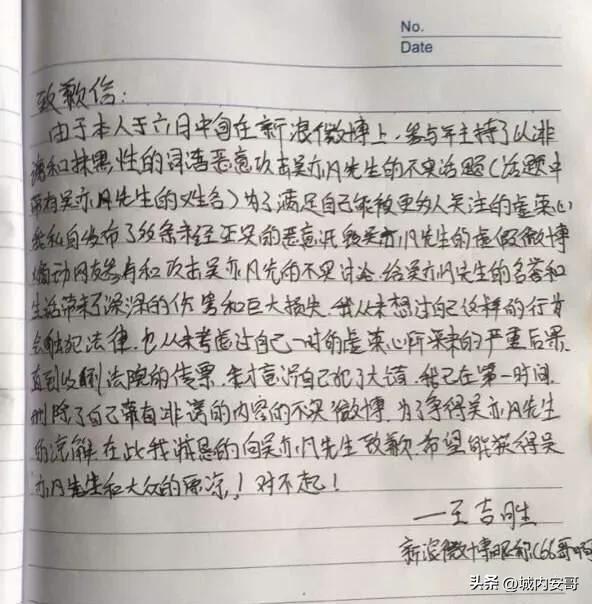 No.
Date
致歉信:
由于本人于六月中旬在新浪微博上,参与主持了以诽
谤和抹黑性的词语恶意攻击吴亦凡先生的不实话题(话题中
带有吴亦凡先生的姓名)为了满足自己能被更多人关注的虚荣心
我私自发布了多条未经证实的恶意诋毁吴亦凡先生的虚假微博
煽动网友参与和攻击吴亦凡先生的不实讨论.给吴亦凡先生的名誉和
生活带来了深深的伤害和巨大损失.我从未想过自己这样的行为
会触犯法律.也从未考虑过自己一时的虚荣心所带来的严重后果.
直到收到法院的传票.我才意识自己犯了大错.我已在第一时间.
删除了自己带有诽谤的内容的不实微博.为了争得吴亦凡先生
的谅解.在此我诚恳的向吴亦凡先生致歉.希望能获得吴
亦凡先生和大众的原谅!对不起!
—王吉胜
新浪微博昵称(66哥啊
头条 @城内安哥